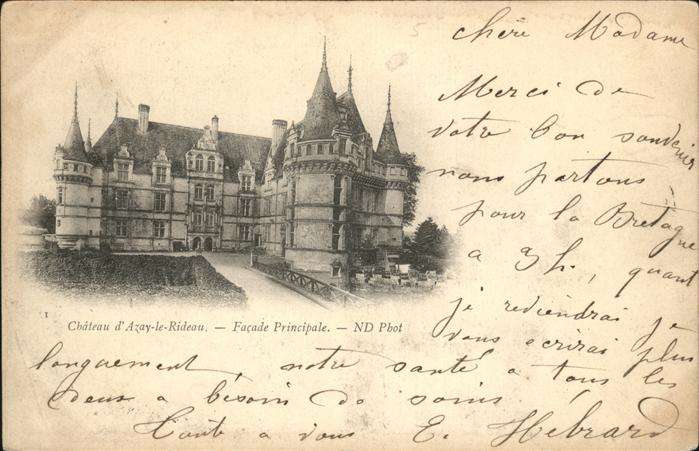 chère Madame
Merci de
votre bon souvenir
nous partons
pour la Bretagne
a 3h., quant
je reviendrai je
vous écrirai plus
1
Château d'Azay-le-Rideau. — Façade Principale. — ND Phot
longuement, notre santé a tous les
deux a besoin de soins.
Tout a vous E. Hébrard